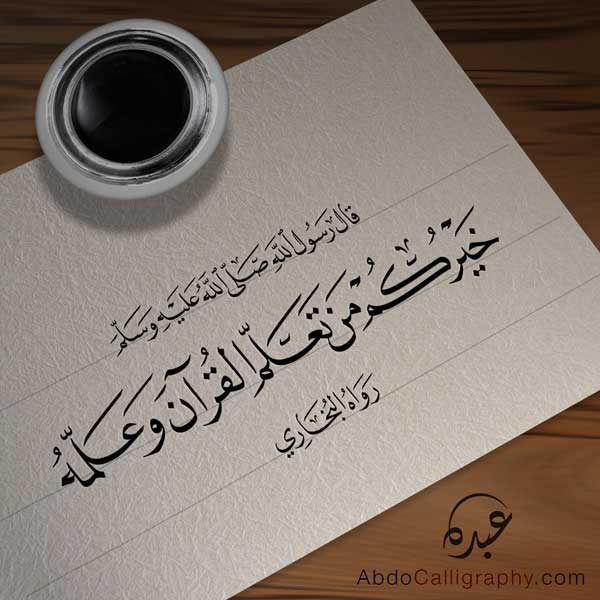 قال رسول الله صلى الله عليه وسلم
خَيْرُكُمْ مَنْ تَعَلَّمَ الْقُرْآنَ وَعَلَّمَهُ
رَوَاهُ الْبُخَارِي
عبده
AbdoCalligraphy.com